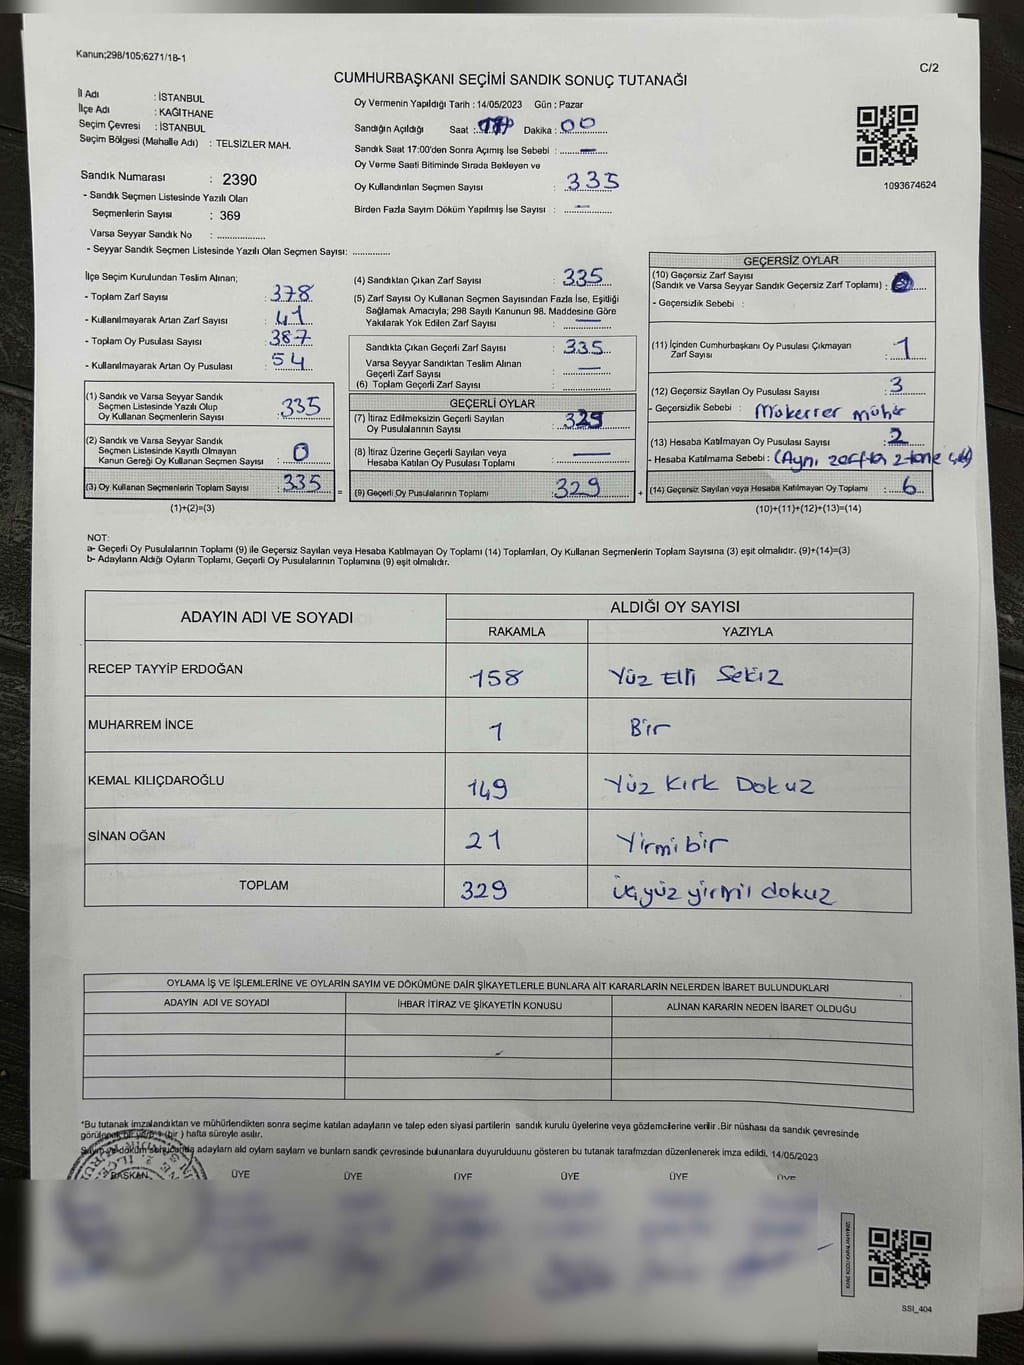 Kanun;298/105;6271/18-1
C/2
CUMHURBAŞKANI SEÇİMİ SANDIK SONUÇ TUTANAĞI
İl Adı : İSTANBUL
İlçe Adı : KAĞITHANE
Seçim Çevresi : İSTANBUL
Seçim Bölgesi (Mahalle Adı) : TELSİZLER MAH.
Oy Vermenin Yapıldığı Tarih : 14/05/2023 Gün : Pazar
Sandığın Açıldığı Saat : Dakika : 00
Sandık Saat 17:00'den Sonra Açımış İse Sebebi : —
Oy Verme Saati Bitiminde Sırada Bekleyen ve
Oy Kullandırılan Seçmen Sayısı : 335
Birden Fazla Sayım Döküm Yapılmış İse Sayısı : —
1093674624
Sandık Numarası : 2390
- Sandık Seçmen Listesinde Yazılı Olan
Seçmenlerin Sayısı : 369
Varsa Seyyar Sandık No :
- Seyyar Sandık Seçmen Listesinde Yazılı Olan Seçmen Sayısı:
İlçe Seçim Kurulundan Teslim Alınan;
- Toplam Zarf Sayısı : 378
- Kullanılmayarak Artan Zarf Sayısı : 41
- Toplam Oy Pusulası Sayısı : 387
- Kullanılmayarak Artan Oy Pusulası : 54
(1) Sandık ve Varsa Seyyar Sandık
Seçmen Listesinde Yazılı Olup
Oy Kullanan Seçmenlerin Sayısı : 335
(2) Sandık ve Varsa Seyyar Sandık
Seçmen Listesinde Kayıtlı Olmayan
Kanun Gereği Oy Kullanan Seçmen Sayısı : 0
(3) Oy Kullanan Seçmenlerin Toplam Sayısı : 335 =
(1)+(2)=(3)
(4) Sandıktan Çıkan Zarf Sayısı : 335
(5) Zarf Sayısı Oy Kullanan Seçmen Sayısından Fazla İse, Eşitliği
Sağlamak Amacıyla; 298 Sayılı Kanunun 98. Maddesine Göre
Yakılarak Yok Edilen Zarf Sayısı : —
Sandıkta Çıkan Geçerli Zarf Sayısı : 335
Varsa Seyyar Sandıktan Teslim Alınan
Geçerli Zarf Sayısı : —
(6) Toplam Geçerli Zarf Sayısı :
GEÇERLİ OYLAR
(7) İtiraz Edilmeksizin Geçerli Sayılan
Oy Pusulalarının Sayısı : 329
(8) İtiraz Üzerine Geçerli Sayılan veya
Hesaba Katılan Oy Pusulası Toplamı : —
(9) Geçerli Oy Pusulalarının Toplamı : 329 +
GEÇERSİZ OYLAR
(10) Geçersiz Zarf Sayısı
(Sandık ve Varsa Seyyar Sandık Geçersiz Zarf Toplamı) :
- Geçersizlik Sebebi :
(11) İçinden Cumhurbaşkanı Oy Pusulası Çıkmayan
Zarf Sayısı : 1
(12) Geçersiz Sayılan Oy Pusulası Sayısı : 3
- Geçersizlik Sebebi : Mükerrer mühür
(13) Hesaba Katılmayan Oy Pusulası Sayısı : 2
- Hesaba Katılmama Sebebi : (Aynı zarftan 2 tane
(14) Geçersiz Sayılan veya Hesaba Katılmayan Oy Toplamı : 6
(10)+(11)+(12)+(13)=(14)
NOT:
a- Geçerli Oy Pusulalarının Toplamı (9) ile Geçersiz Sayılan veya Hesaba Katılmayan Oy Toplamı (14) Toplamları, Oy Kullanan Seçmenlerin Toplam Sayısına (3) eşit olmalıdır. (9)+(14)=(3)
b- Adayların Aldığı Oyların Toplamı, Geçerli Oy Pusulalarının Toplamına (9) eşit olmalıdır.
ADAYIN ADI VE SOYADI
ALDIĞI OY SAYISI
RAKAMLA YAZIYLA
RECEP TAYYİP ERDOĞAN 158 Yüz Elli Sekiz
MUHARREM İNCE 1 Bir
KEMAL KILIÇDAROĞLU 149 Yüz Kırk Dokuz
SİNAN OĞAN 21 Yirmibir
TOPLAM 329 üçyüz yirmi dokuz
OYLAMA İŞ VE İŞLEMLERİNE VE OYLARIN SAYIM VE DÖKÜMÜNE DAİR ŞİKAYETLERLE BUNLARA AİT KARARLARIN NELERDEN İBARET BULUNDUKLARI
ADAYIN ADI VE SOYADI İHBAR İTİRAZ VE ŞİKAYETİN KONUSU ALINAN KARARIN NEDEN İBARET OLDUĞU
*Bu tutanak imzalandıktan ve mühürlendikten sonra seçime katılan adayların ve talep eden siyasi partilerin sandık kurulu üyelerine veya gözlemcilerine verilir .Bir nüshası da sandık çevresinde
görülecek bir yere 1 (bir ) hafta süreyle asılır.
Sayım ve döküm sonucunda adayların ald oyların sayların ve bunların sandk çevresinde bulunanlara duyurulduunu gösteren bu tutanak tarafmzdan düzenlenerek imza edildi. 14/05/2023
BAŞKAN ÜYE ÜYE ÜYE ÜYE ÜYE ÜYE
SSI_404